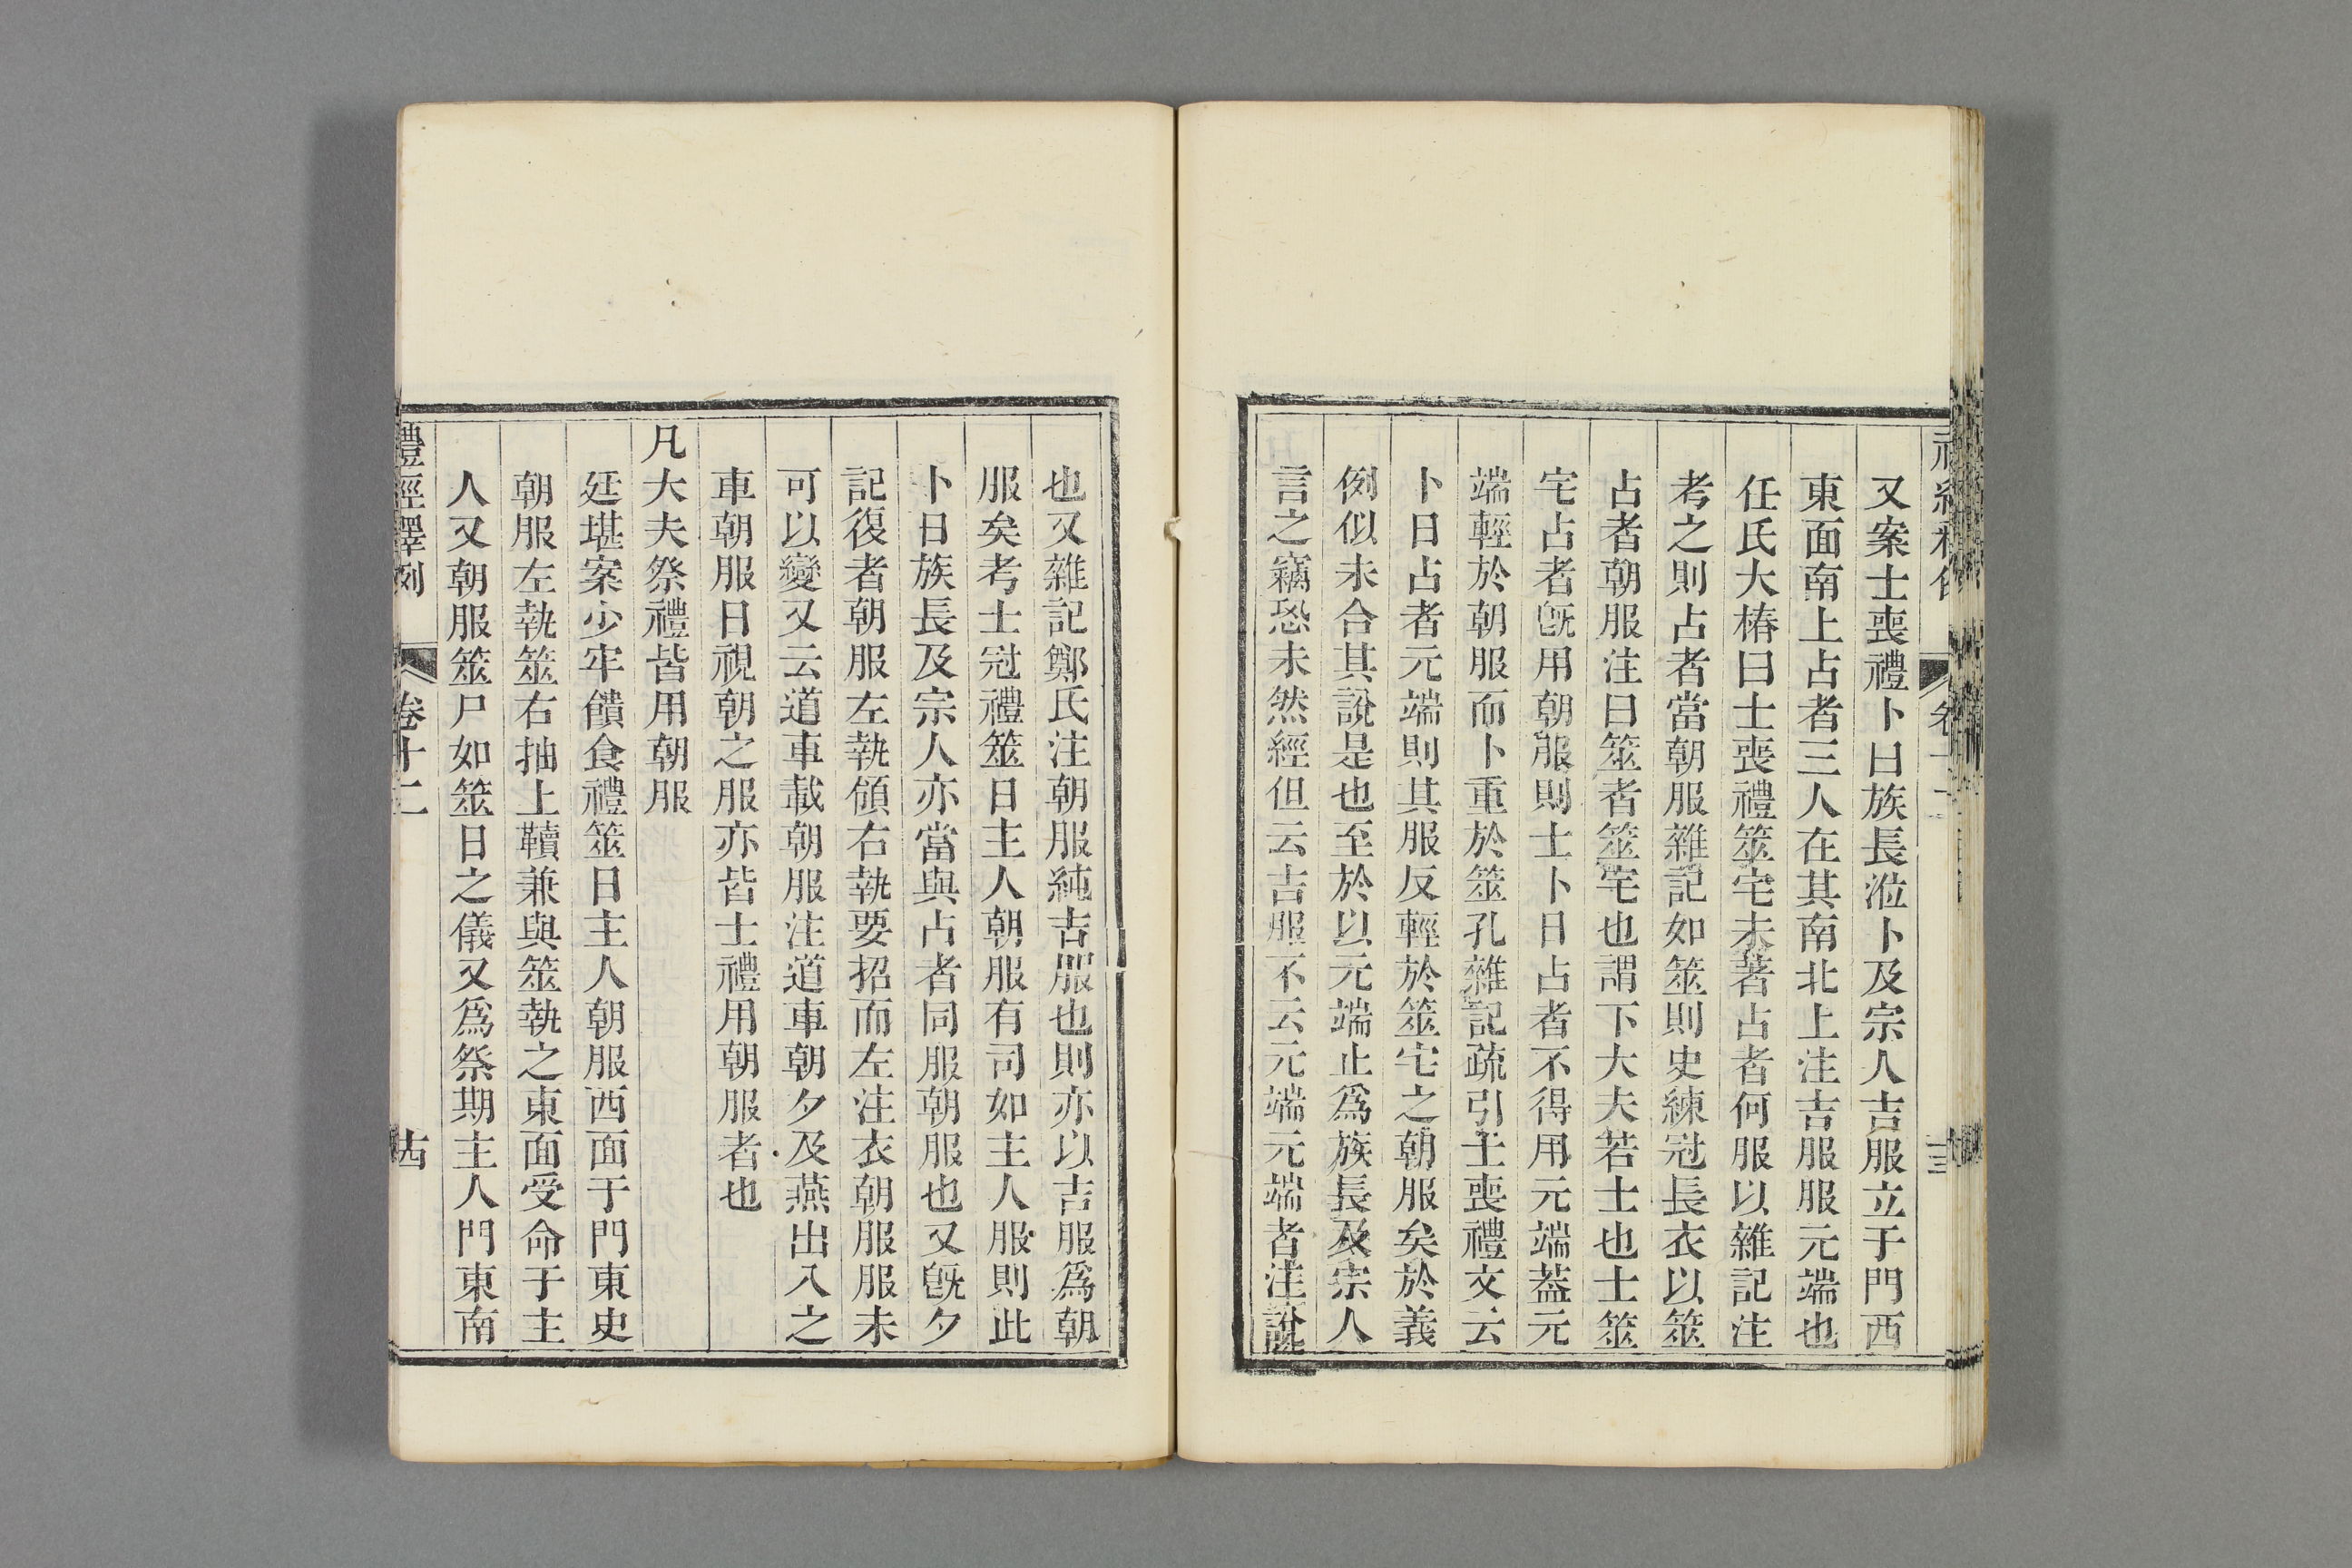 又案士喪禮卜日族長涖卜及宗人吉服立于門西
東面南上占者三人在其南北上注吉服服元端也
任氏大椿曰士喪禮筮宅未著占者何服以雜記注
考之則占者當朝服雜記如筮則史練冠長衣以筮
占者朝服注曰筮者筮宅也謂下大夫若士也士筮
宅占者旣用朝服則士卜日占者不得用元端葢元
端輕於朝服而卜重於筮孔雜記疏引士喪禮文云
卜日占者元端則其服反輕於筮宅之朝服矣於義
例似未合其說是也至於以元端止爲族長及宗人
言之竊恐未然經但云吉服不云元端元端者注說
也又雜記鄭氏注朝服純吉服也則亦以吉服爲朝
服矣考士冠禮筮日主人朝服有司如主人服則此
卜日族長及宗人亦當與占者同服朝服也又旣夕
記復者朝服左執領右執要招而左注衣朝服服未
可以變又云道車載朝服注道車朝夕及燕出入之
車朝服日視朝之服亦皆士禮用朝服者也
凡大夫祭禮皆用朝服
廷堪案少牢饋食禮筮日主人朝服西面于門東史
朝服左執筮右抽上韇兼與筮執之東面受命于主
人又朝服筮尸如筮日之儀又爲祭期主人門東南
禮經釋例 卷十二 十四